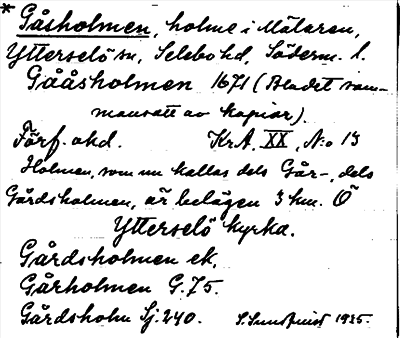 * Gåsholmen, holme i Mälaren,
Ytterselö sn, Selebo hd, Söderm. l.
Gååsholmen 1671 (Bladet sam-
mansatt av kopior).
Förf. okd. KrA, XX, N:o 13
Holmen, som nu kallas dels Går-, dels
Gårdsholmen, är belägen 3 km. Ö
Ytterselö kyrka.
Gårdsholmen ek.
Gårholmen G. 75.
Gårdsholm Sj. 240. S. Sundquist 1935.